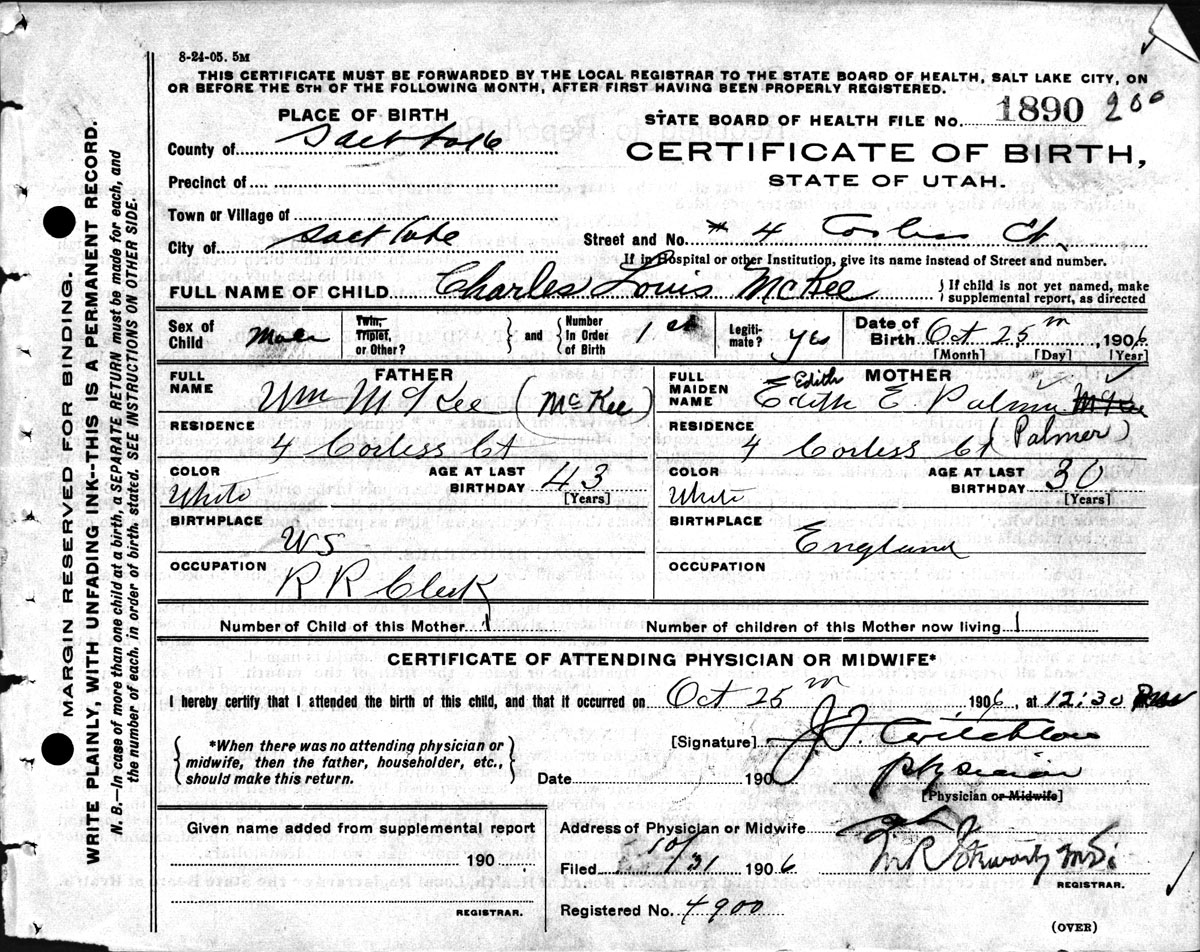 8-24-05. 5M
THIS CERTIFICATE MUST BE FORWARDED BY THE LOCAL REGISTRAR TO THE STATE BOARD OF HEALTH, SALT LAKE CITY, ON
OR BEFORE THE 5TH OF THE FOLLOWING MONTH, AFTER FIRST HAVING BEEN PROPERLY REGISTERED.
PLACE OF BIRTH
STATE BOARD OF HEALTH FILE No. 1890 200
County of Salt Lake
CERTIFICATE OF BIRTH,
Precinct of
STATE OF UTAH.
Town or Village of
City of Salt Lake
Street and No. # 4 Corless Ct
If in Hospital or other Institution, give its name instead of Street and number.
FULL NAME OF CHILD Charles Louis McKee
} If child is not yet named, make
supplemental report, as directed
Sex of Child Male
Twin, Triplet, or Other? } and { Number in Order of Birth 1st
Legitimate? Yes
Date of Birth Oct 25th 1906
[Month] [Day] [Year]
FATHER
FULL NAME Wm McKee (McKee)
RESIDENCE 4 Corless Ct
COLOR White
AGE AT LAST BIRTHDAY 43
[Years]
BIRTHPLACE US
OCCUPATION R R Clerk
MOTHER
FULL MAIDEN NAME Edith Edith E Palmer McKee
(Palmer)
RESIDENCE 4 Corless Ct
COLOR White
AGE AT LAST BIRTHDAY 30
[Years]
BIRTHPLACE England
OCCUPATION
Number of Child of this Mother 1
Number of children of this Mother now living 1
CERTIFICATE OF ATTENDING PHYSICIAN OR MIDWIFE*
I hereby certify that I attended the birth of this child, and that it occurred on Oct 25th 1906, at 12:30
{ *When there was no attending physician or
midwife, then the father, householder, etc.,
should make this return. }
[Signature] J. F. Critchlow
Date 190 Physician
[Physician or Midwife]
Given name added from supplemental report
190
REGISTRAR.
Address of Physician or Midwife
Filed 10/31 1906
M R
REGISTRAR.
Registered No. 4900
(OVER)
MARGIN RESERVED FOR BINDING.
WRITE PLAINLY, WITH UNFADING INK--THIS IS A PERMANENT RECORD.
N. B.—In case of more than one child at a birth, a SEPARATE RETURN must be made for each, and
the number of each, in order of birth stated. SEE INSTRUCTIONS ON OTHER SIDE.